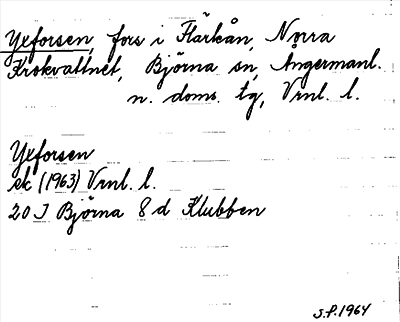 Yxforsen, fors i Flärkån, Norra
Krokvattnet, Björna sn, Ångermanl.
n. doms. tg, Vrnl. l.
Yxforsen
ek (1963) Vrnl. l.
20 J Björna 8 d Klubben
S.P. 1964